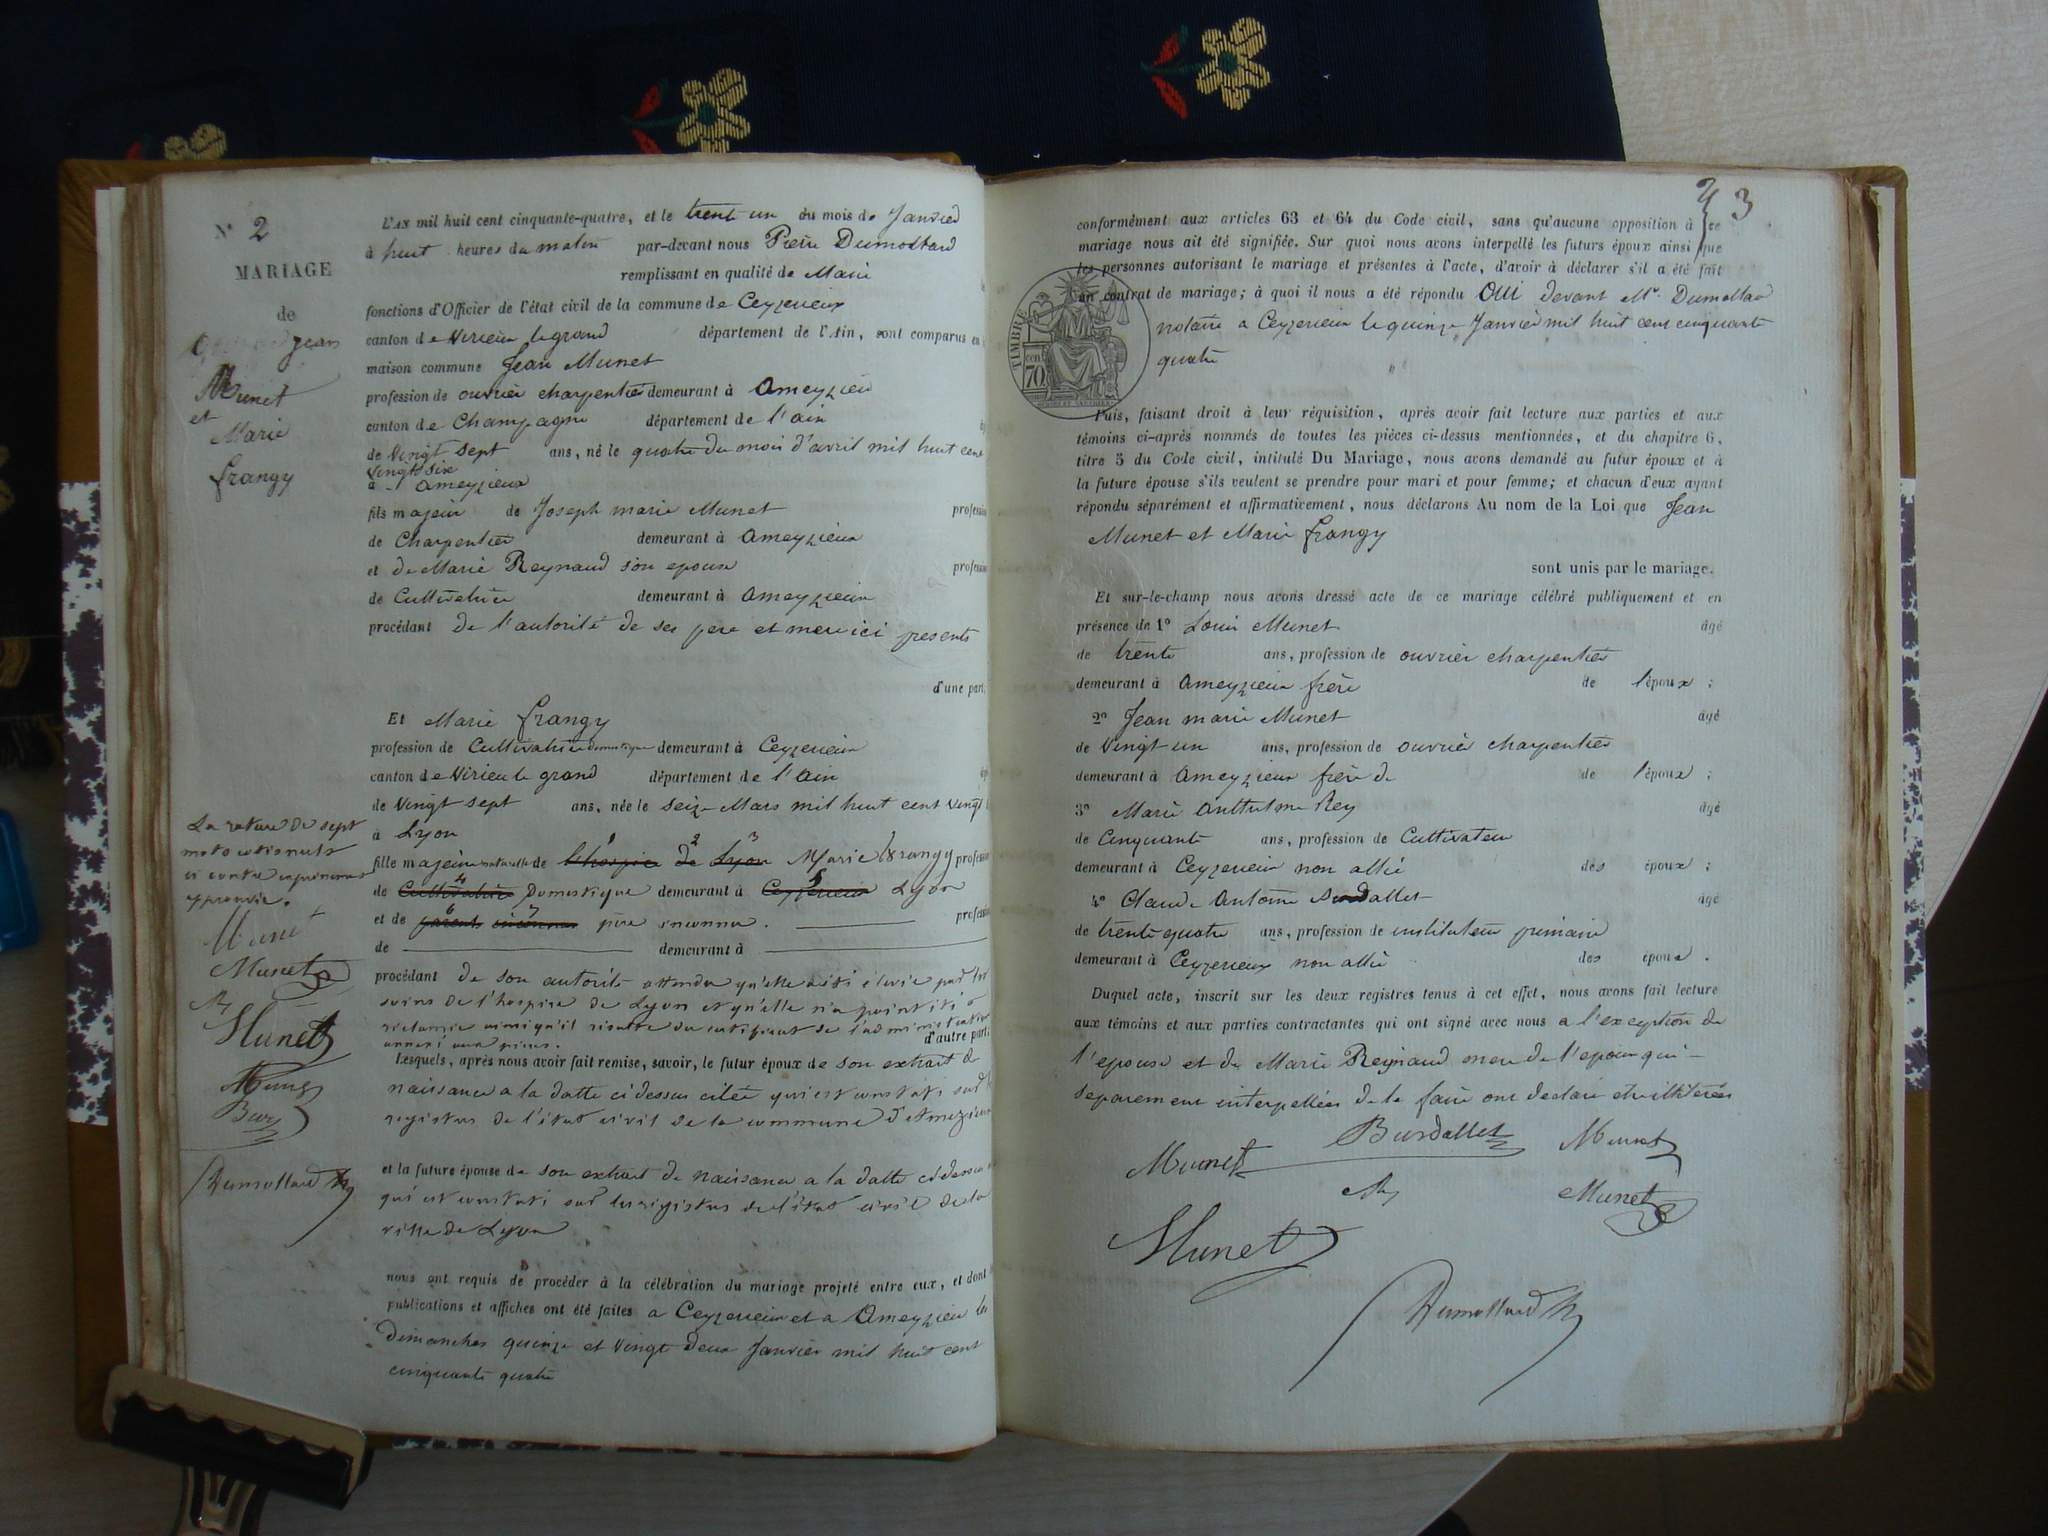 N° 2
MARIAGE
de
Jean
Munet
et
Marie
frangy
L'AN mil huit cent cinquante-quatre, et le trente un du mois de Janvier
à huit heures du matin par-devant nous Pierre Dumollard
remplissant en qualité de Maire
fonctions d'Officier de l'état civil de la commune de Ceyzerieux
canton de Virieu le grand département de l'Ain, sont comparus en
maison commune Jean Munet
profession de ouvrier charpentier demeurant à Ameyzieu
canton de Champagne département de l'ain
de Vingt sept ans, né le quatre du mois d'avril mil huit cent
vingt six
à Ameyzieux
fils majeur de Joseph marie Munet profession
de Charpentier demeurant à Ameyzieux
et de Marie Reynaud son epouse profession
de Cultivatrice demeurant à Ameyzieux
procédant de l'autorité de ses pere et mere ici presents
d'une part,
Et Marie frangy
profession de Cultivatrice domestique demeurant à Ceyzerieux
canton de Virieu le grand département de l'Ain
de Vingt sept ans, née le seize Mars mil huit cent vingt
à Lyon
fille majeure naturelle de l'hospice de Lyon Marie frangy profession
de Cultivatrice Domestique demeurant à Ceyzerieux Lyon
et de parents inconnus père inconnu. profession
de demeurant à
procédant de son autorité attendu qu'elle a été élevée par les
soins de l'hospice de Lyon et qu'elle n'a point été
réclamée ainsi qu'il résulte du certificat de l'administration
annexé aux pièces.
d'autre part
Lesquels, après nous avoir fait remise, savoir, le futur époux de son extrait de
naissance a la datte ci dessus citée qui est constaté sur les
registres de l'état civil de la commune d'Ameyzieux
et la future épouse de son extrait de naissance a la datte ci dessus
qui est constaté sur les registres de l'état civil de la
ville de Lyon
nous ont requis de procéder à la célébration du mariage projeté entre eux, et dont
publications et affiches ont été faites a Ceyzerieux et a Ameyzieu les
dimanches quinze et vingt deux Janvier mil huit cent
cinquante quatre
La rature de sept
mots
ci contre
approuvée.
Munet
Munet
Rey
Munet
Munet
Dumollard
3
conformément aux articles 63 et 64 du Code civil, sans qu'aucune opposition à ce
mariage nous ait été signifiée. Sur quoi nous avons interpellé les futurs époux ainsi que
les personnes autorisant le mariage et présentes à l'acte, d'avoir à déclarer s'il a été fait
un contrat de mariage; à quoi il nous a été répondu Oui devant Me. Dumollard
notaire a Ceyzerieux le quinze Janvier mil huit cent cinquante
quatre
TIMBRE
cen
70
Puis, faisant droit à leur réquisition, après avoir fait lecture aux parties et aux
témoins ci-après nommés de toutes les pièces ci-dessus mentionnées, et du chapitre 6,
titre 5 du Code civil, intitulé Du Mariage, nous avons demandé au futur époux et à
la future épouse s'ils veulent se prendre pour mari et pour femme; et chacun d'eux ayant
répondu séparément et affirmativement, nous déclarons Au nom de la Loi que Jean
Munet et Marie frangy
sont unis par le mariage.
Et sur-le-champ nous avons dressé acte de ce mariage célébré publiquement et en
présence de 1° Louis Munet âgé
de trente ans, profession de ouvrier charpentier
demeurant à Ameyzieux frère de l'époux ;
2° Jean marie Munet âgé
de Vingt un ans, profession de ouvrier charpentier
demeurant à Ameyzieux frère de de l'époux ;
3° Marie Anthelme Rey âgé
de Cinquante ans, profession de Cultivateur
demeurant à Ceyzerieux non allié des époux ;
4° Claude Antoine Burdallet âgé
de trente quatre ans, profession de instituteur primaire
demeurant à Ceyzerieux non allié des époux .
Duquel acte, inscrit sur les deux registres tenus à cet effet, nous avons fait lecture
aux témoins et aux parties contractantes qui ont signé avec nous a l'exception de
l'epouse et de Marie Reynaud mere de l'epoux qui
séparement interpellées de le faire ont declaré etre illiterées
Munet Burdallet Munet
Rey Munet
Munet
Dumollard